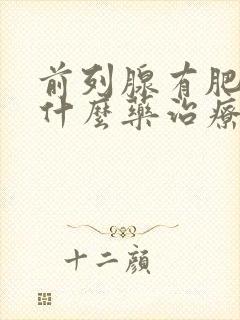 前列腺有肥
什麼藥治療
十二顏